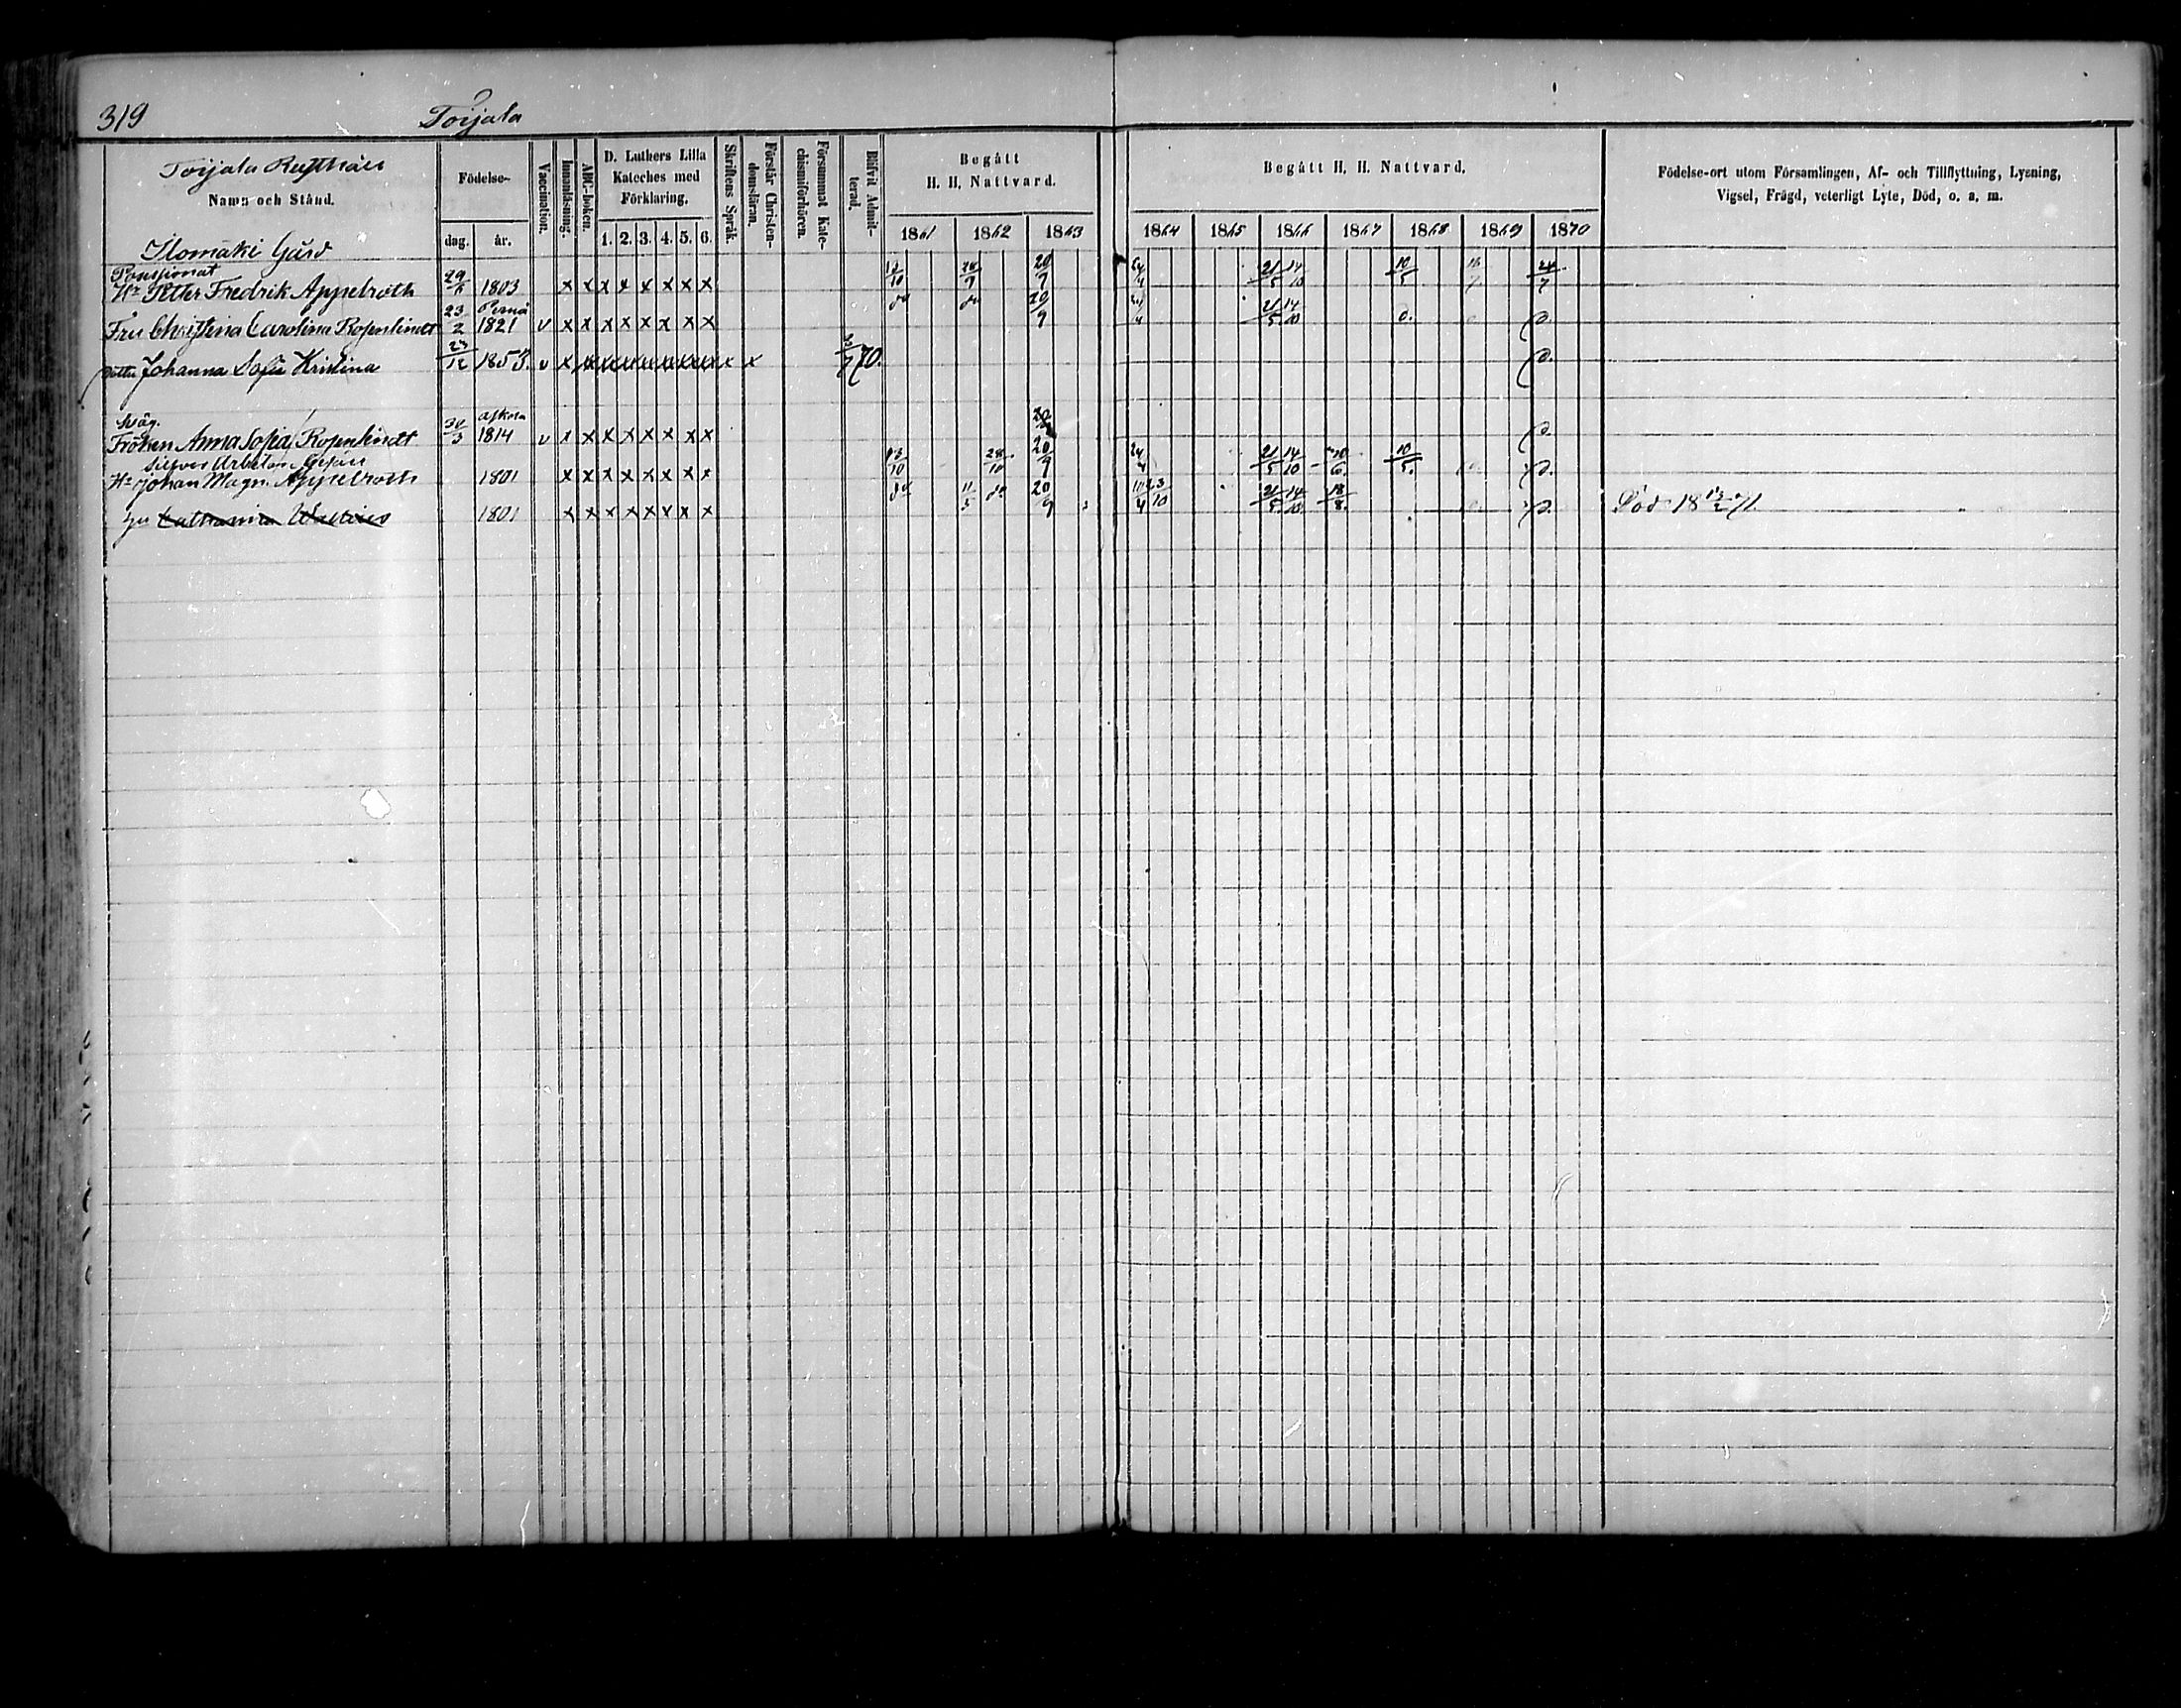 319 Torjala
Torjala Rusthåll
Namn och Stånd.
Födelse-
dag. år.
Vaccination.
Innanläsning.
ABC-boken.
D. Luthers Lilla Kateches med Förklaring.
1. 2. 3. 4. 5. 6.
Skriftens Språk.
Förstår Christendomsläran.
Försummat Katechismiförhören.
Blifvit Admitterad.
Begått H. H. Nattvard.
1861 1862 1863
Begått H. H. Nattvard.
1864 1865 1866 1867 1868 1869 1870
Födelse-ort utom Församlingen, Af- och Tillflyttning, Lysning,
Vigsel, Frägd, veterligt Lyte, Död, o. a. m.
Ilomäki Gård
Hr Petter Fredrik Appelroth 1803 x x x x x x x x 20/9 21/5 14/10 10/5 24/7
Pernå
Fru Christina Carolina Rosenlindt 23/2 1821 v x x x x x x x x do do 20/9 21/5 14/10 d:o
Johanna Sofia Kristina 23/12 1853. v x x x x x x x x x x 70.
Askola
Fröken Anna Sofia Rosenlindt 30/3 1814 v x x x x x x x x
Hr Johan Magn. Appelroth 1801 x x x x x x x x 28/10 20/9 24/4 21/5 14/10 10/5.
1801 x x x x x x x x do 11/5 do 20/9 11/4 23/10 21/5 14/10 18/8. Död 18 13/2 71.